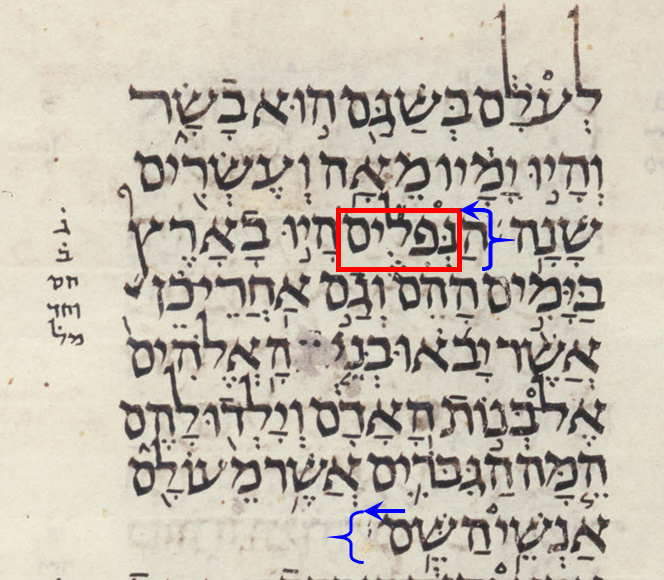 לְעֹלָם בְּשַׁגָּם הוּא בָשָׂר
וְהָיוּ יָמָיו מֵאָה וְעֶשְׂרִים
שָׁנָה הַנְּפִלִים הָיוּ בָאָרֶץ
בַּיָּמִים הָהֵם וְגַם אַחֲרֵי כֵן
אֲשֶׁר יָבֹאוּ בְּנֵי הָאֱלֹהִים
אֶל בְּנוֹת הָאָדָם וְיָלְדוּ לָהֶם
הֵמָּה הַגִּבֹּרִים אֲשֶׁר מֵעוֹלָם
אַנְשֵׁי הַשֵּׁם
ג
ב
חס
וחד
מל